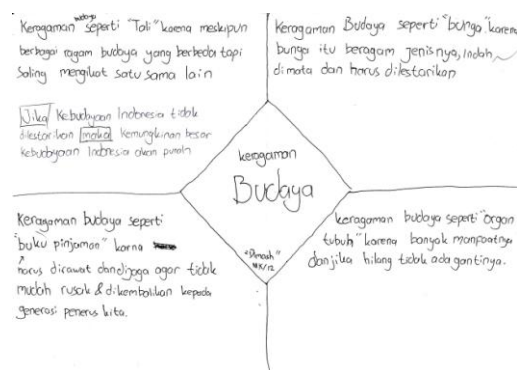 Keragaman budaya seperti "Tali" karena meskipun
berbagai ragam budaya yang berbeda tapi
Saling mengikat satu sama lain
Jika Kebudayaan Indonesia tidak
dilestarikan maka kemungkinan besar
kebudayaan Indonesia akan punah
Keragaman Budaya seperti "bunga" karena
bunga itu beragam jenisnya, Indah
di mata dan harus dilestarikan
keragaman
Budaya
"Dimash"
Keragaman budaya seperti
"buku pinjaman" karna
harus dirawat dan dijaga agar tidak
mudah rusak & dikembalikan kepada
generasi penerus kita.
keragaman budaya seperti "organ
tubuh" karena banyak manpaatnya
dan jika hilang tidak ada gantinya.